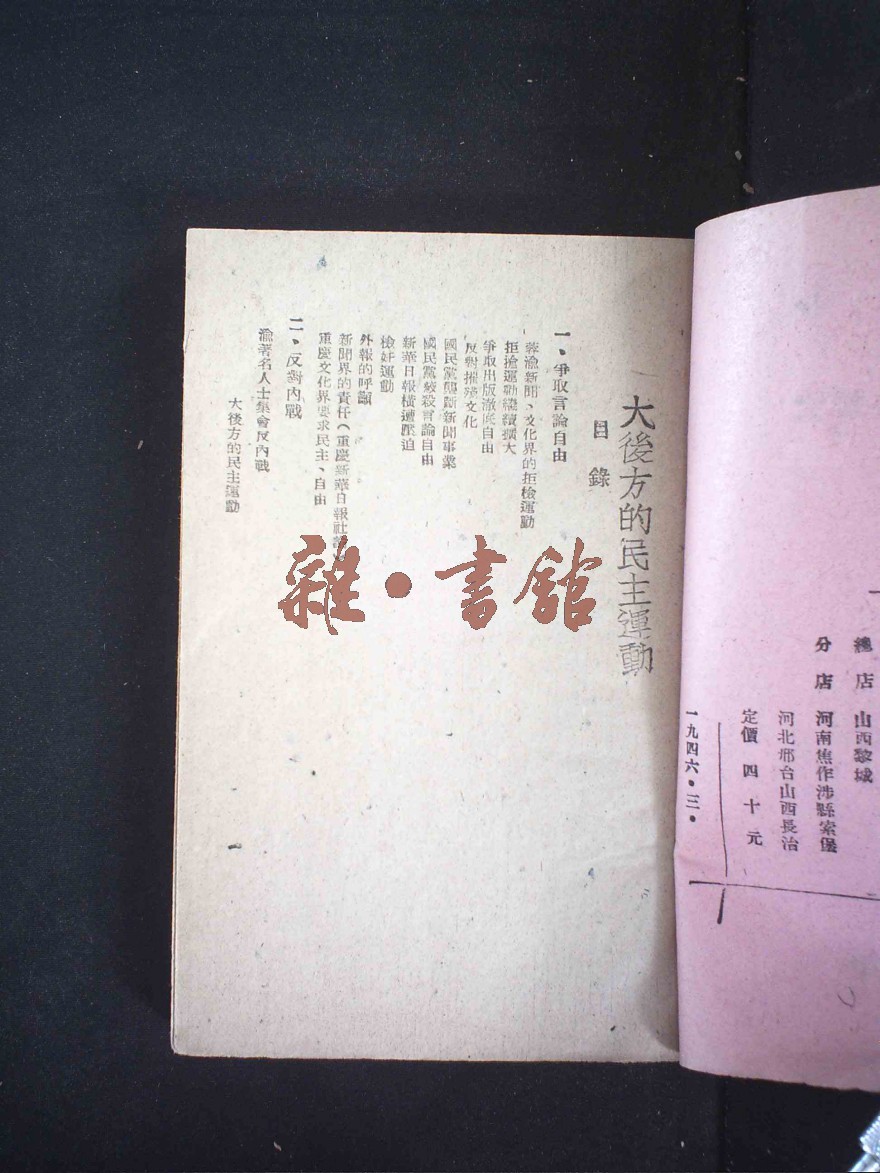 總店 山西黎城
分店 河南焦作涉縣索堡
河北邢台山西長治
定價 四十元
一九四六·三·
大後方的民主運動
目錄
一、爭取言論自由
蓉渝新聞、文化界的拒檢運動
拒檢運動繼續擴大
爭取出版澈底自由
反對摧殘文化
國民黨壟斷新聞事業
國民黨絞殺言論自由
新華日報橫遭壓迫
檢奸運動
外報的呼籲
新聞界的責任(重慶新華日報社
重慶文化界要求民主、自由
二、反對內戰
渝著名人士集會反內戰
大後方的民主運動
雜·書館